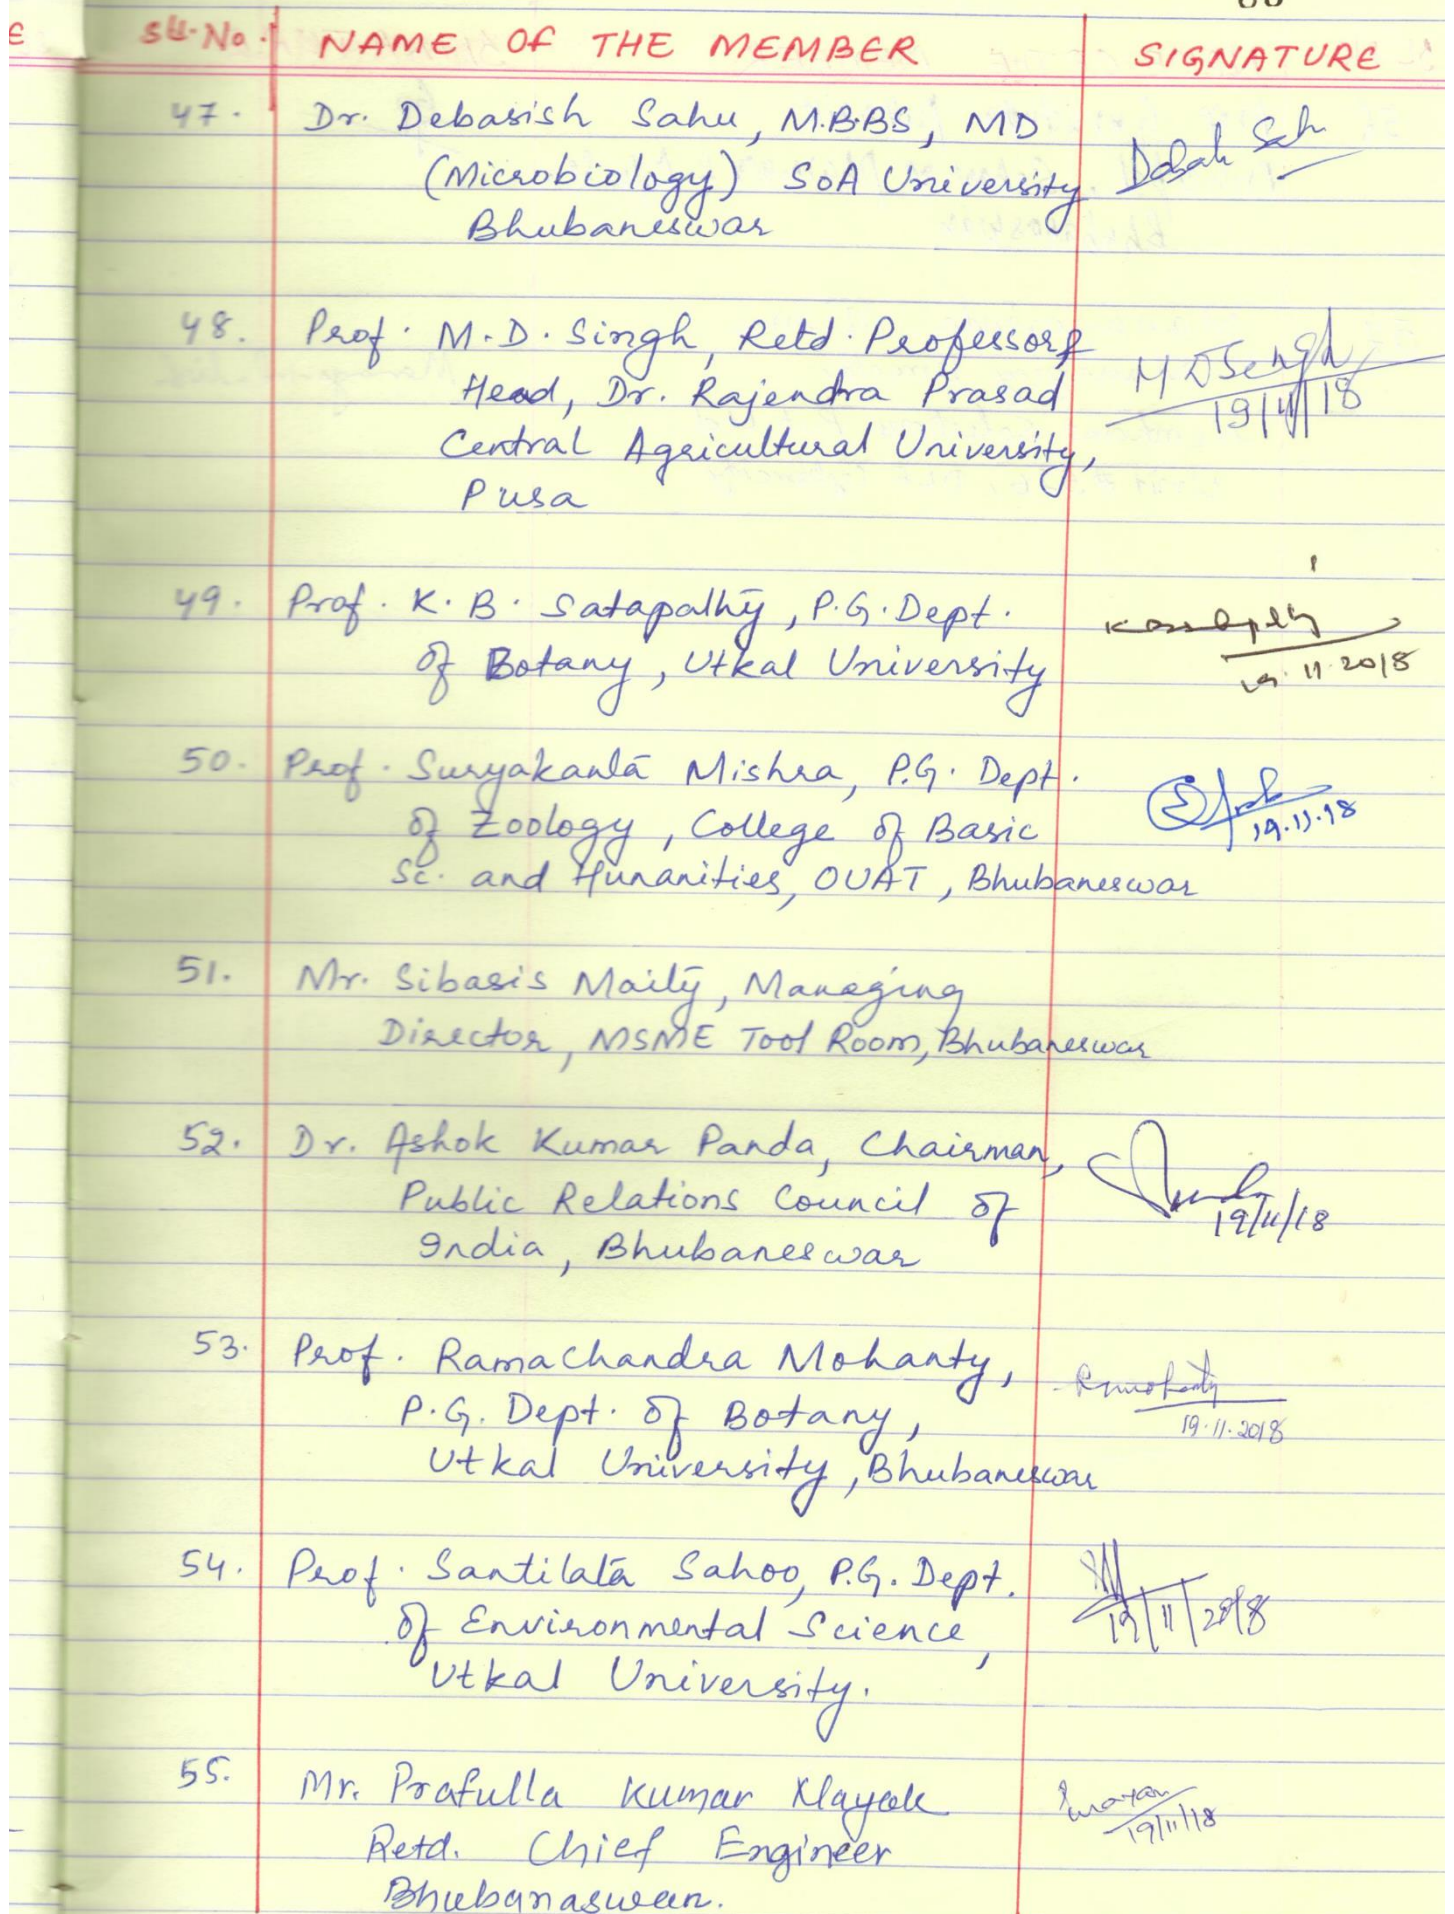 E
Sll. No. NAME OF THE MEMBER SIGNATURE
47. Dr. Debasish Sahu, M.B.BS, MD
(Microbiology) SoA University
Bhubaneswar
48. Prof. M.D. Singh, Retd. Professor &
Head, Dr. Rajendra Prasad
Central Agricultural University,
Pusa
M D Singh
19/11/18
49. Prof. K.B. Satapathy, P.G. Dept.
of Botany, Utkal University
19.11.2018
50. Prof. Suryakanta Mishra, P.G. Dept.
of Zoology, College of Basic
Sc. and Hunanities, OUAT, Bhubaneswar
19.11.18
51. Mr. Sibasis Maity, Managing
Director, MSME Tool Room, Bhubaneswar
52. Dr. Ashok Kumar Panda, Chairman,
Public Relations Council of
India, Bhubaneswar
19/11/18
53. Prof. Ramachandra Mohanty,
P.G. Dept. of Botany,
Utkal University, Bhubaneswar
Rmohanty
19.11.2018
54. Prof. Santilata Sahoo, P.G. Dept.
of Environmental Science,
Utkal University.
19/11/2018
55. Mr. Prafulla Kumar Nayak
Retd. Chief Engineer
Bhubanaswar.
19/11/18